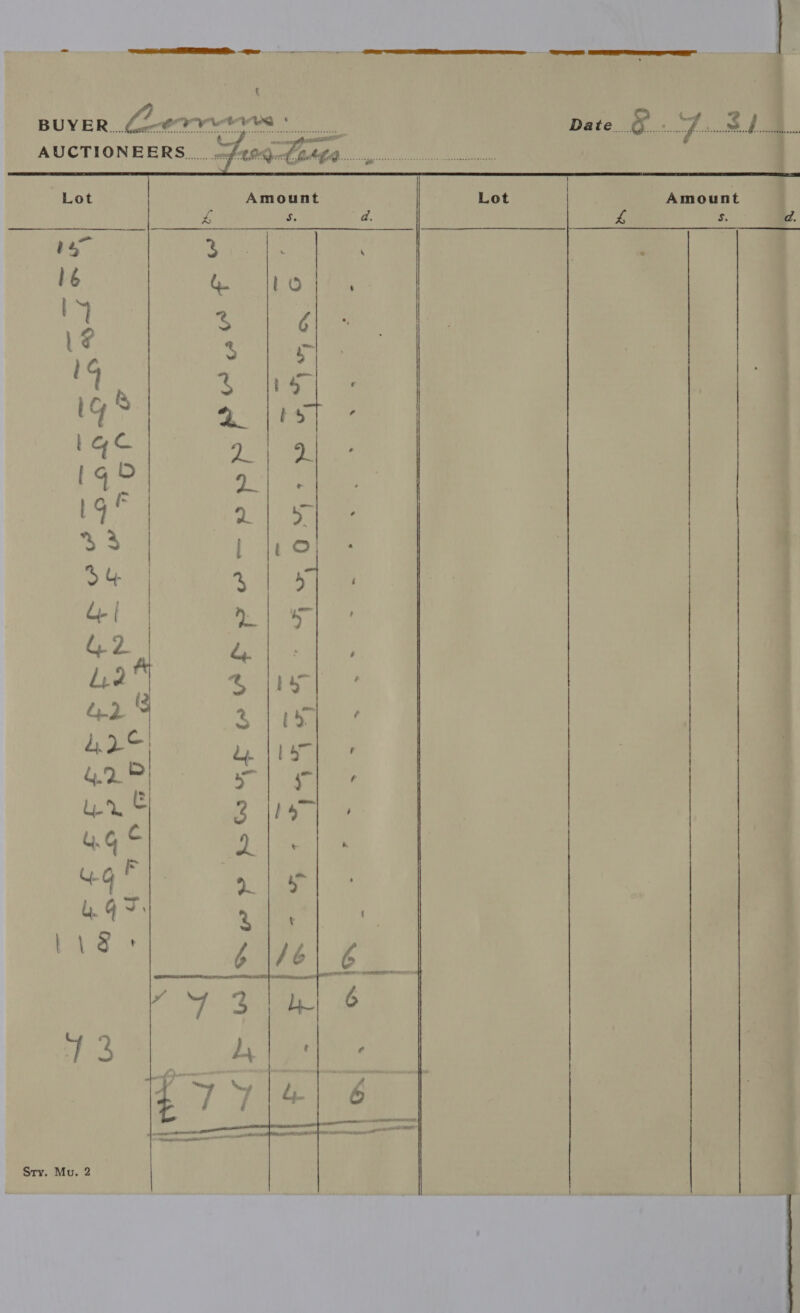 BUYER
Date 8.7.31
AUCTIONEERS
Lot Amount Lot Amount
£ s. d. £ s. d.
15 3 . .
16 4 10 .
17 3 6 .
18 3 5 .
19 3 15 .
19B 2 15 .
19C 2 2 .
19D 2 . .
19F 2 5 .
33 1 10 .
34 3 5 .
41 2 5 .
42 4 . .
42A 3 15 .
42B 3 15 .
42C 4 15 .
42D 5 5 .
42E 3 15 .
49C 2 . .
49F 2 5 .
49J. 3 . .
118. 6 16 6
73 4 6
73 4 . .
£77 4 6
Sty. Mu. 2